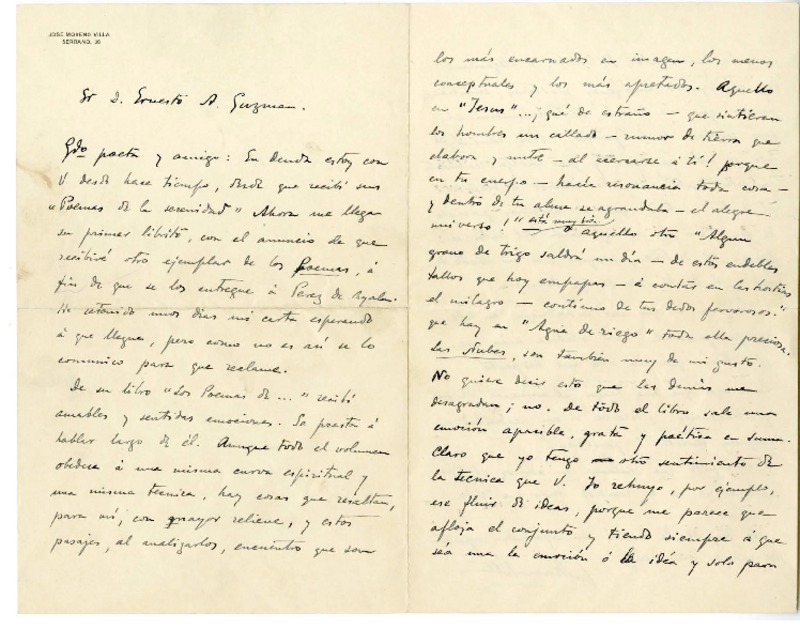 JOSÉ MORENO VILLA
SERRANO, 26
Sr D. Ernesto A. Guzman.
Qdo poeta y amigo: En deuda estoy con
V desde hace tiempo, desde que recibí sus
"Poemas de la serenidad" Ahora me llega
su primer librito, con el anuncio de que
recibiré otro ejemplar de los Poemas, á
fin de que se los entregue á Perez de Ayala.
He retenido unos dias mi carta esperando
á que llegue, pero como no es así se lo
comunico para que reclame.
De su libro "Los Poemas de ..." recibí
amables y sentidas emociones. Se presta á
hablar largo de él. Aunque todo el volumen
obedece á una misma curva espiritual y
una misma tecnica, hay cosas que resaltan,
para mí, con mayor relieve, y estos
pasajes, al analizarlos, encuentro que son
los más encarnados en imagen, los menos
conceptuales y los más apretados. Aquello
en "Jesus"... ¡qué de estraño - que sintieran
los hombres un callado - rumor de tierra que
elabora y nutre - al acercarse á tí! porque
en tu cuerpo - hacía resonancia toda cosa -
y dentro de tu alma se agrandaba - el alegre
universo!" está muy bién
y aquello otro "Algun
grano de trigo saldrá un día - de estos endebles
tallos que hoy empapas - á contar en las hostias
el milagro - continuo de tus dedos fervorosos."
que hay en "Agua de riego" toda ella preciosa.
Las Nubes, son también muy de mi gusto.
No quiere decir esto que las demás me
desagradan; no. De todo el libro sale una
emoción apacible, grata y poética en suma.
Claro que yo tengo otro sentimiento de
la tecnica que V. Yo rehuyo, por ejemplo,
ese fluir de ideas, porque me parece que
afloja el conjunto y tiendo siempre á que
sea una la emoción ó la idéa y solo para